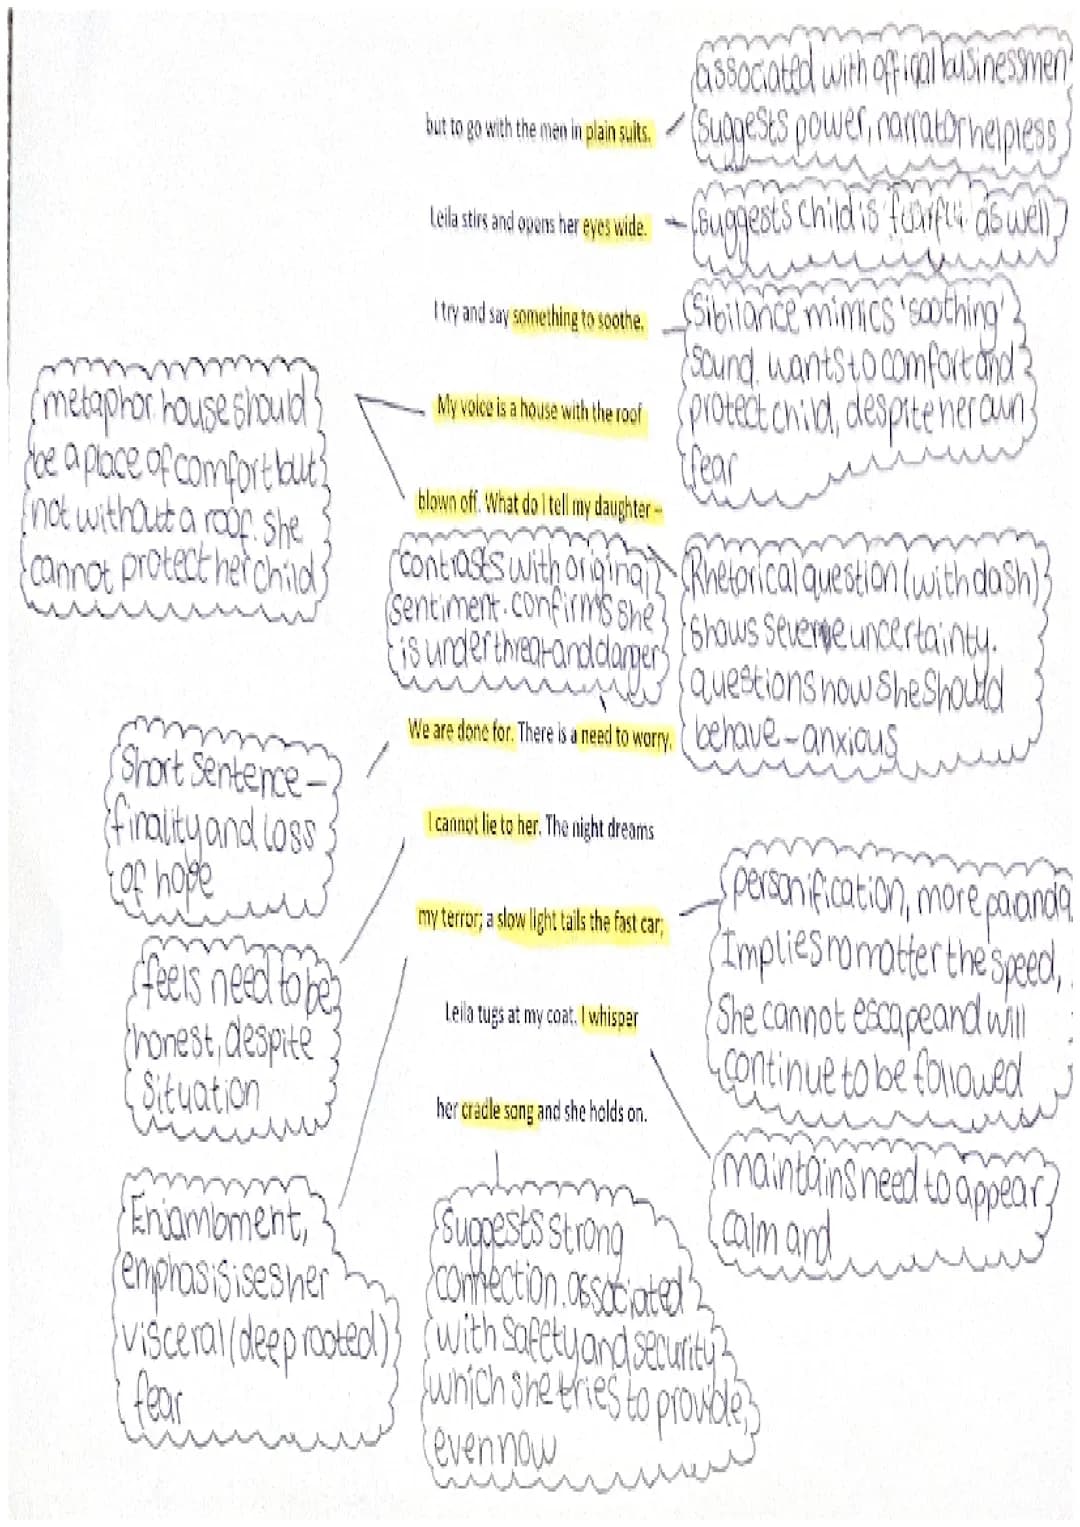 associated with official businessmen
suggests power, narrator helpless
but to go with the men in plain suits.
Leila stirs and opens her eyes wide.
suggests child is fearful as well
I try and say something to soothe.
Sibilance mimics 'soothing'
sound. wants to comfort and
protect child, despite her own
fear
My voice is a house with the roof
metaphor. house should
be a place of comfort but
not without a roof. She
cannot protect her child
blown off. What do I tell my daughter –
contrasts with original
sentiment. confirms she
is under threat and danger
Rhetorical question (with dash)
shows severe uncertainty.
questions how she should
behave – anxious
We are done for. There is a need to worry.
Short sentence –
finality and loss
of hope
I cannot lie to her. The night dreams
feels need to be
honest, despite
situation
my terror; a slow light tails the fast car;
personification, more
Implies no matter the speed,
She cannot escape and will
continue to be followed
Leila tugs at my coat. I whisper
maintains need to appear
calm and
her cradle song and she holds on.
Enjambment,
emphasisises her
visceral (deep rooted)
fear
suggests strong
connection. associated
with safety and security
which she tries to provide,
even now